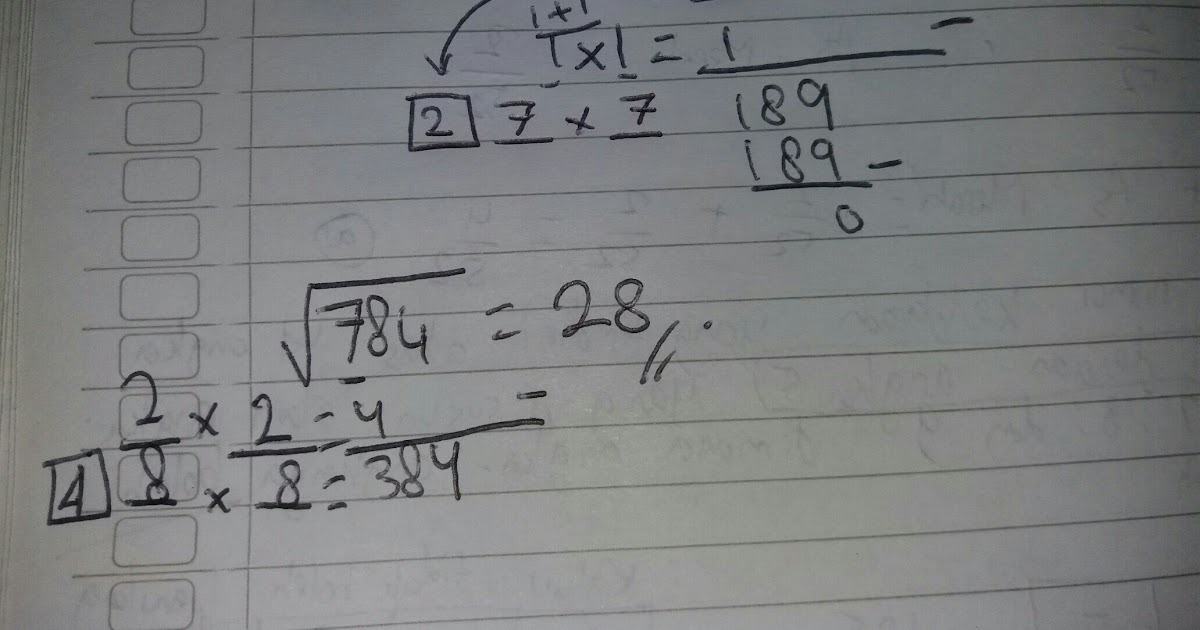 1+1
1 x 1 = 1 -
2 7 x 7 189
189 -
0
√784 = 28 //.
2 x 2 = 4 -
4 8 x 8 = 384